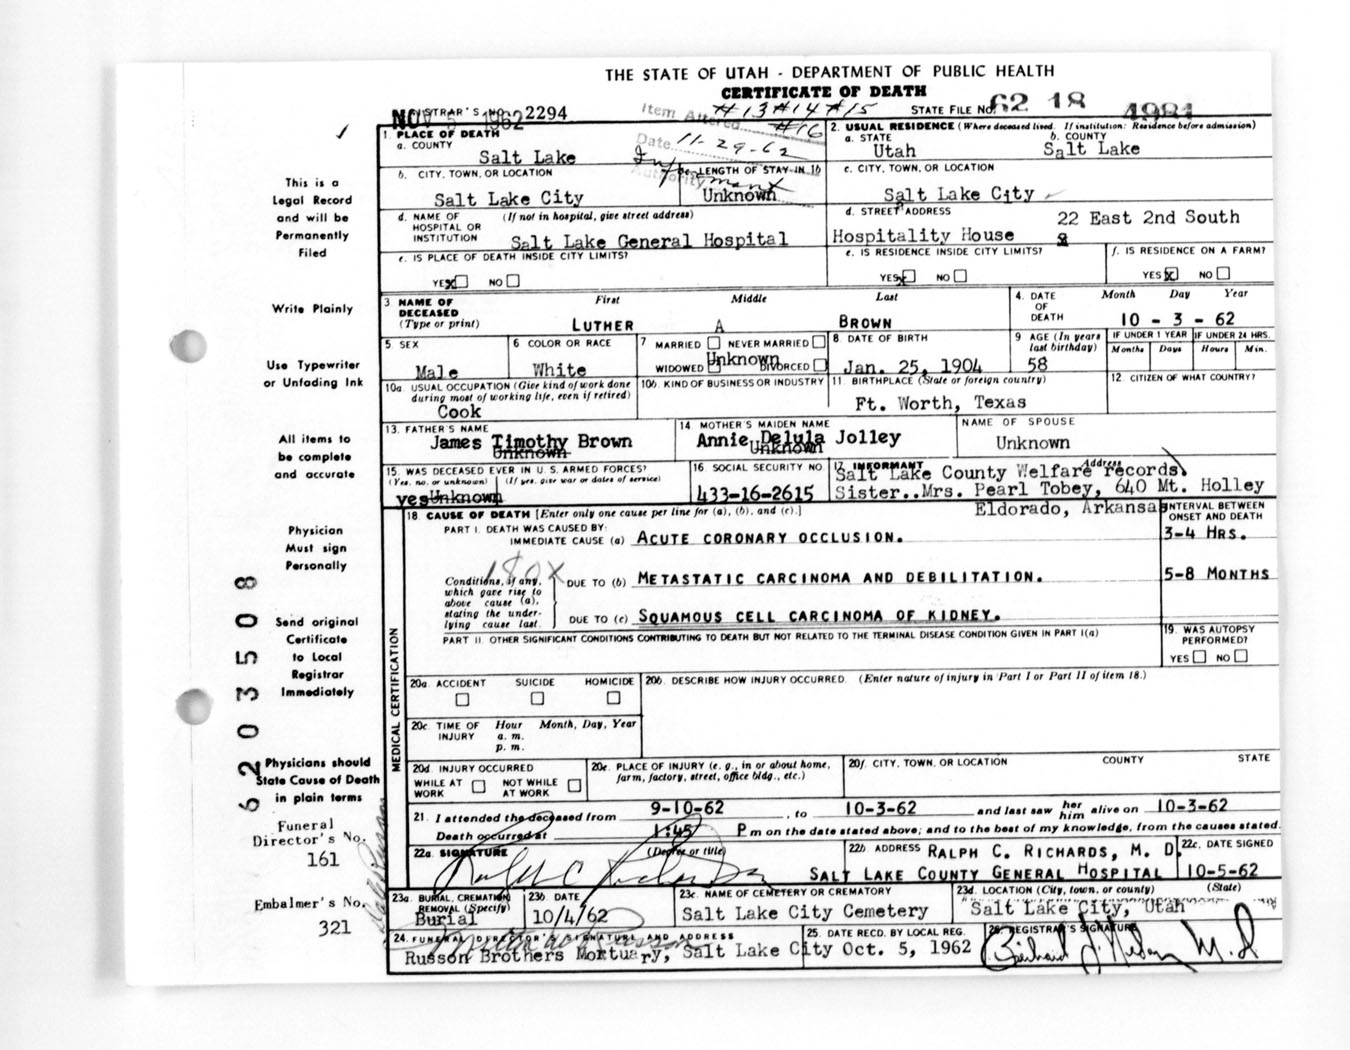 THE STATE OF UTAH - DEPARTMENT OF PUBLIC HEALTH
CERTIFICATE OF DEATH
REGISTRAR'S NO. 2294
NOV 5 1962
Item Altered #13#14#15
#16
Date 11-29-62
Authority Informant
STATE FILE NO. 62 18 4981
1. PLACE OF DEATH
a. COUNTY
Salt Lake
2. USUAL RESIDENCE (Where deceased lived. If institution: Residence before admission)
a. STATE b. COUNTY
Utah Salt Lake
b. CITY, TOWN, OR LOCATION
Salt Lake City
LENGTH OF STAY IN 1b
Unknown
c. CITY, TOWN, OR LOCATION
Salt Lake City
d. NAME OF HOSPITAL OR INSTITUTION (If not in hospital, give street address)
Salt Lake General Hospital
d. STREET ADDRESS 22 East 2nd South
Hospitality House
e. IS PLACE OF DEATH INSIDE CITY LIMITS?
YES X NO
e. IS RESIDENCE INSIDE CITY LIMITS?
YES X NO
f. IS RESIDENCE ON A FARM?
YES X NO
3 NAME OF DECEASED (Type or print) First Middle Last
LUTHER A BROWN
4. DATE OF DEATH Month Day Year
10 - 3 - 62
5. SEX
Male
6 COLOR OR RACE
White
7 MARRIED NEVER MARRIED
Unknown
WIDOWED DIVORCED
8. DATE OF BIRTH
Jan. 25, 1904
9 AGE (In years last birthday)
58
IF UNDER 1 YEAR IF UNDER 24 HRS.
Months Days Hours Min.
10a. USUAL OCCUPATION (Give kind of work done during most of working life, even if retired)
Cook
10b. KIND OF BUSINESS OR INDUSTRY
11. BIRTHPLACE (State or foreign country)
Ft. Worth, Texas
12 CITIZEN OF WHAT COUNTRY?
13. FATHER'S NAME
James Timothy Brown
Unknown
14 MOTHER'S MAIDEN NAME
Annie Delula Jolley
Unknown
NAME OF SPOUSE
Unknown
15. WAS DECEASED EVER IN U.S. ARMED FORCES?
(Yes, no, or unknown) (If yes, give war or dates of service)
yes Unknown
16. SOCIAL SECURITY NO.
433-16-2615
17. INFORMANT Address
Salt Lake County Welfare records
Sister..Mrs. Pearl Tobey, 640 Mt. Holley
Eldorado, Arkansas
18. CAUSE OF DEATH [Enter only one cause per line for (a), (b), and (c).]
INTERVAL BETWEEN ONSET AND DEATH
PART I. DEATH WAS CAUSED BY:
IMMEDIATE CAUSE (a) ACUTE CORONARY OCCLUSION. 3-4 HRS.
180X
Conditions, if any, which gave rise to above cause (a), stating the underlying cause last.
DUE TO (b) METASTATIC CARCINOMA AND DEBILITATION. 5-8 MONTHS
DUE TO (c) SQUAMOUS CELL CARCINOMA OF KIDNEY.
PART II. OTHER SIGNIFICANT CONDITIONS CONTRIBUTING TO DEATH BUT NOT RELATED TO THE TERMINAL DISEASE CONDITION GIVEN IN PART I(a)
19. WAS AUTOPSY PERFORMED?
YES NO
MEDICAL CERTIFICATION
20a. ACCIDENT SUICIDE HOMICIDE
20b. DESCRIBE HOW INJURY OCCURRED. (Enter nature of injury in Part I or Part II of item 18.)
20c. TIME OF INJURY Hour Month, Day, Year
a. m.
p. m.
20d. INJURY OCCURRED
WHILE AT WORK NOT WHILE AT WORK
20e. PLACE OF INJURY (e. g., in or about home, farm, factory, street, office bldg., etc.)
20f. CITY, TOWN, OR LOCATION COUNTY STATE
21. I attended the deceased from 9-10-62, to 10-3-62 and last saw her him alive on 10-3-62
Death occurred at 1:45 P m on the date stated above; and to the best of my knowledge, from the causes stated.
22a. SIGNATURE (Degree or title)
Ralph C Richards
22b ADDRESS RALPH C. RICHARDS, M. D.
SALT LAKE COUNTY GENERAL HOSPITAL
22c. DATE SIGNED
10-5-62
23a. BURIAL, CREMATION, REMOVAL (Specify)
Burial
23b. DATE
10/4/62
23c. NAME OF CEMETERY OR CREMATORY
Salt Lake City Cemetery
23d. LOCATION (City, town, or county) (State)
Salt Lake City, Utah
24. FUNERAL DIRECTOR'S SIGNATURE AND ADDRESS
Russon Brothers Mortuary, Salt Lake City
25. DATE RECD. BY LOCAL REG.
Oct. 5, 1962
26. REGISTRAR'S SIGNATURE
This is a
Legal Record
and will be
Permanently
Filed
Write Plainly
Use Typewriter
or Unfading Ink
All items to
be complete
and accurate
Physician
Must sign
Personally
Send original
Certificate
to Local
Registrar
Immediately
Physicians should
State Cause of Death
in plain terms
Funeral
Director's No.
161
Embalmer's No.
321
6203508